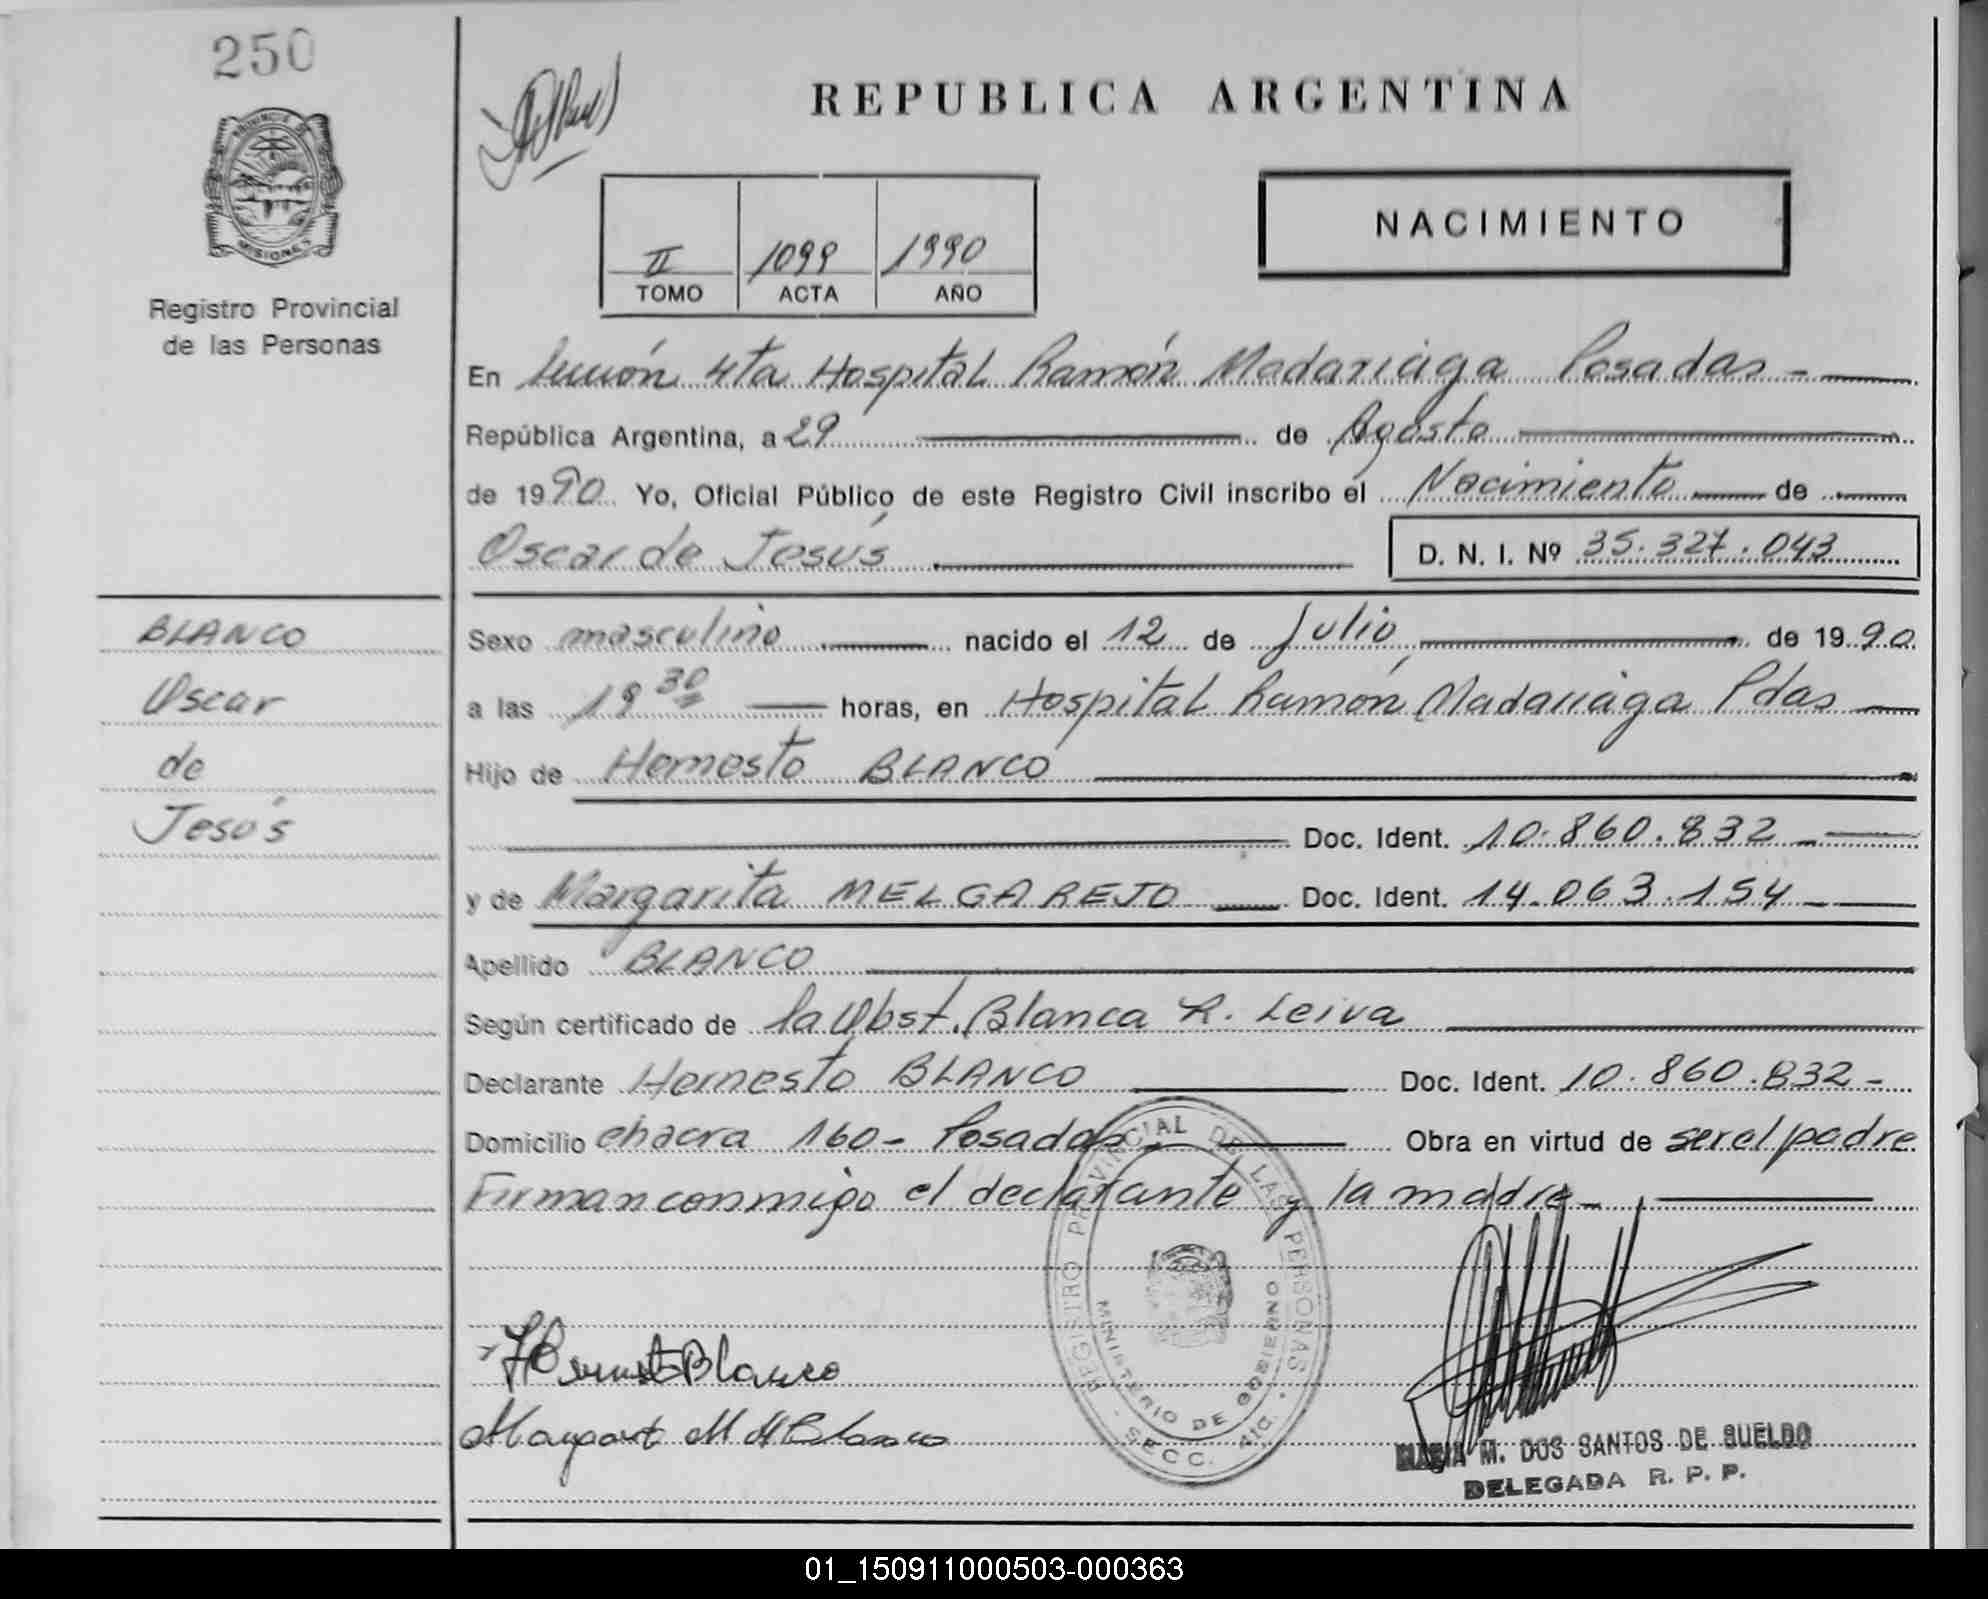 250
REPUBLICA ARGENTINA
PROVINCIA DE
MISIONES
Registro Provincial
de las Personas
II 1099 1990
TOMO ACTA AÑO
NACIMIENTO
En Sección 4ta Hospital Ramón Madariaga Posadas -
República Argentina, a 29 de Agosto
de 1990 Yo, Oficial Público de este Registro Civil inscribo el Nacimiento de
Oscar de Jesús D. N. I. Nº 35.327.043
BLANCO
Oscar
de
Jesús
Sexo masculino nacido el 12 de Julio de 1990
a las 30 horas, en Hospital Ramón Madariaga Pdas
Hijo de Hernesto BLANCO
Doc. Ident. 10.860.832 -
y de Margarita MELGAREJO Doc. Ident. 14.063.154 -
Apellido BLANCO
Según certificado de la Obst. Blanca R. Leiva
Declarante Hernesto BLANCO Doc. Ident. 10.860.832 -
Domicilio chacra 160 - Posadas - Obra en virtud de ser el padre
Firman conmigo el declarante y la madre -
REGISTRO PROVINCIAL DE LAS PERSONAS
MINISTERIO DE GOBIERNO
SECC.
Blanco
M Blanco
M. DOS SANTOS DE SUELDO
DELEGADA R. P. P.
01_150911000503-000363